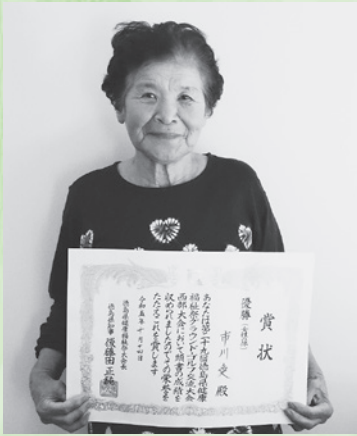 賞状
優勝（女性の部）
市川 殿
あなたは第二十九回徳島県健康
福祉祭グラウンド・ゴルフ交流大会
西部大会において頭書の成績を
収められましたのでその栄誉を
たたえこれを賞します
令和五年十月二十四日
徳島県健康福祉祭大会長
徳島県知事 後藤田正純